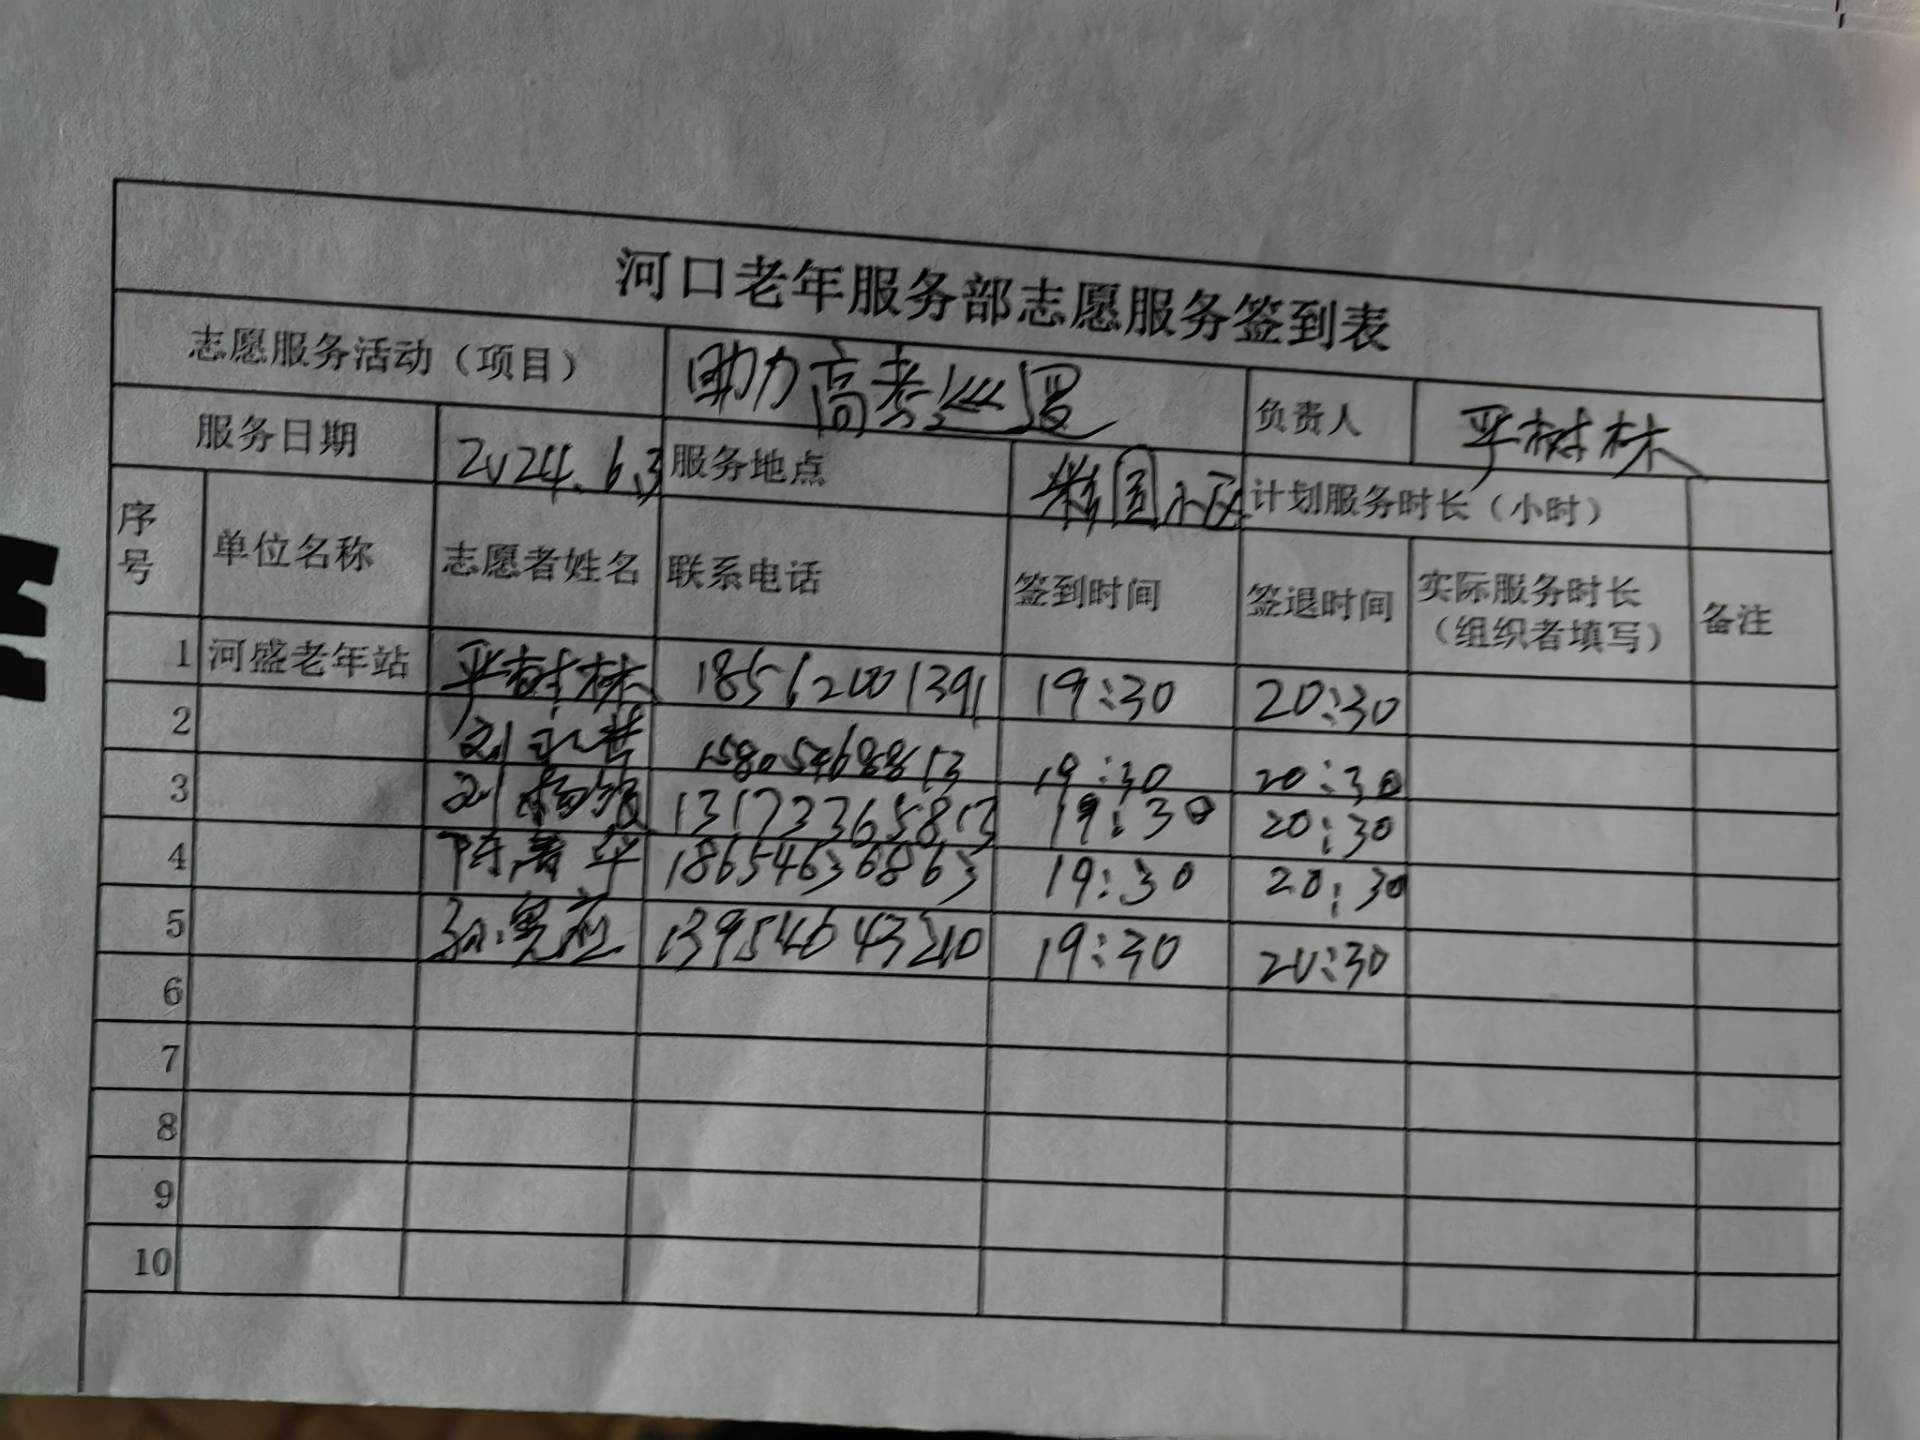 河口老年服务部志愿服务签到表
志愿服务活动（项目） 助力高考巡逻 负责人 平树林
服务日期 2024.6.3 服务地点 小区 计划服务时长（小时）
序号 单位名称 志愿者姓名 联系电话 签到时间 签退时间 实际服务时长（组织者填写） 备注
1 河盛老年站 平树林 18562001391 19:30 20:30
2 刘 15805468813 19:30 20:30
3 刘 19:30 20:30
4 陈 18654636863 19:30 20:30
5 孙 13954643210 19:30 20:30
6
7
8
9
10